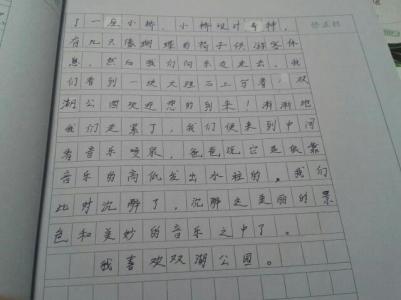 了一座小桥，小桥设计多种，
有几只像蝴蝶的椅子供游客休
息，然后我们向东边走去，我
们看到一块大理石上写着：双
湖公园欢迎您的到来！渐渐地
我们走累了，我们便来到中间
看音乐喷泉，爸爸说它是依靠
音乐的高低发出水柱的。我们
此时沉醉了，沉醉在美丽的景
色和美妙的音乐之中了。
我喜欢双湖公园。